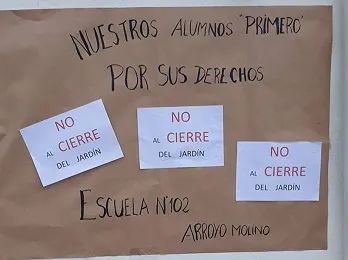 NUESTROS ALUMNOS "PRIMERO"
POR SUS DERECHOS
NO
AL CIERRE
DEL JARDÍN
NO
AL CIERRE
DEL JARDÍN
NO
AL CIERRE
DEL JARDÍN
ESCUELA Nº102
ARROYO MOLINO